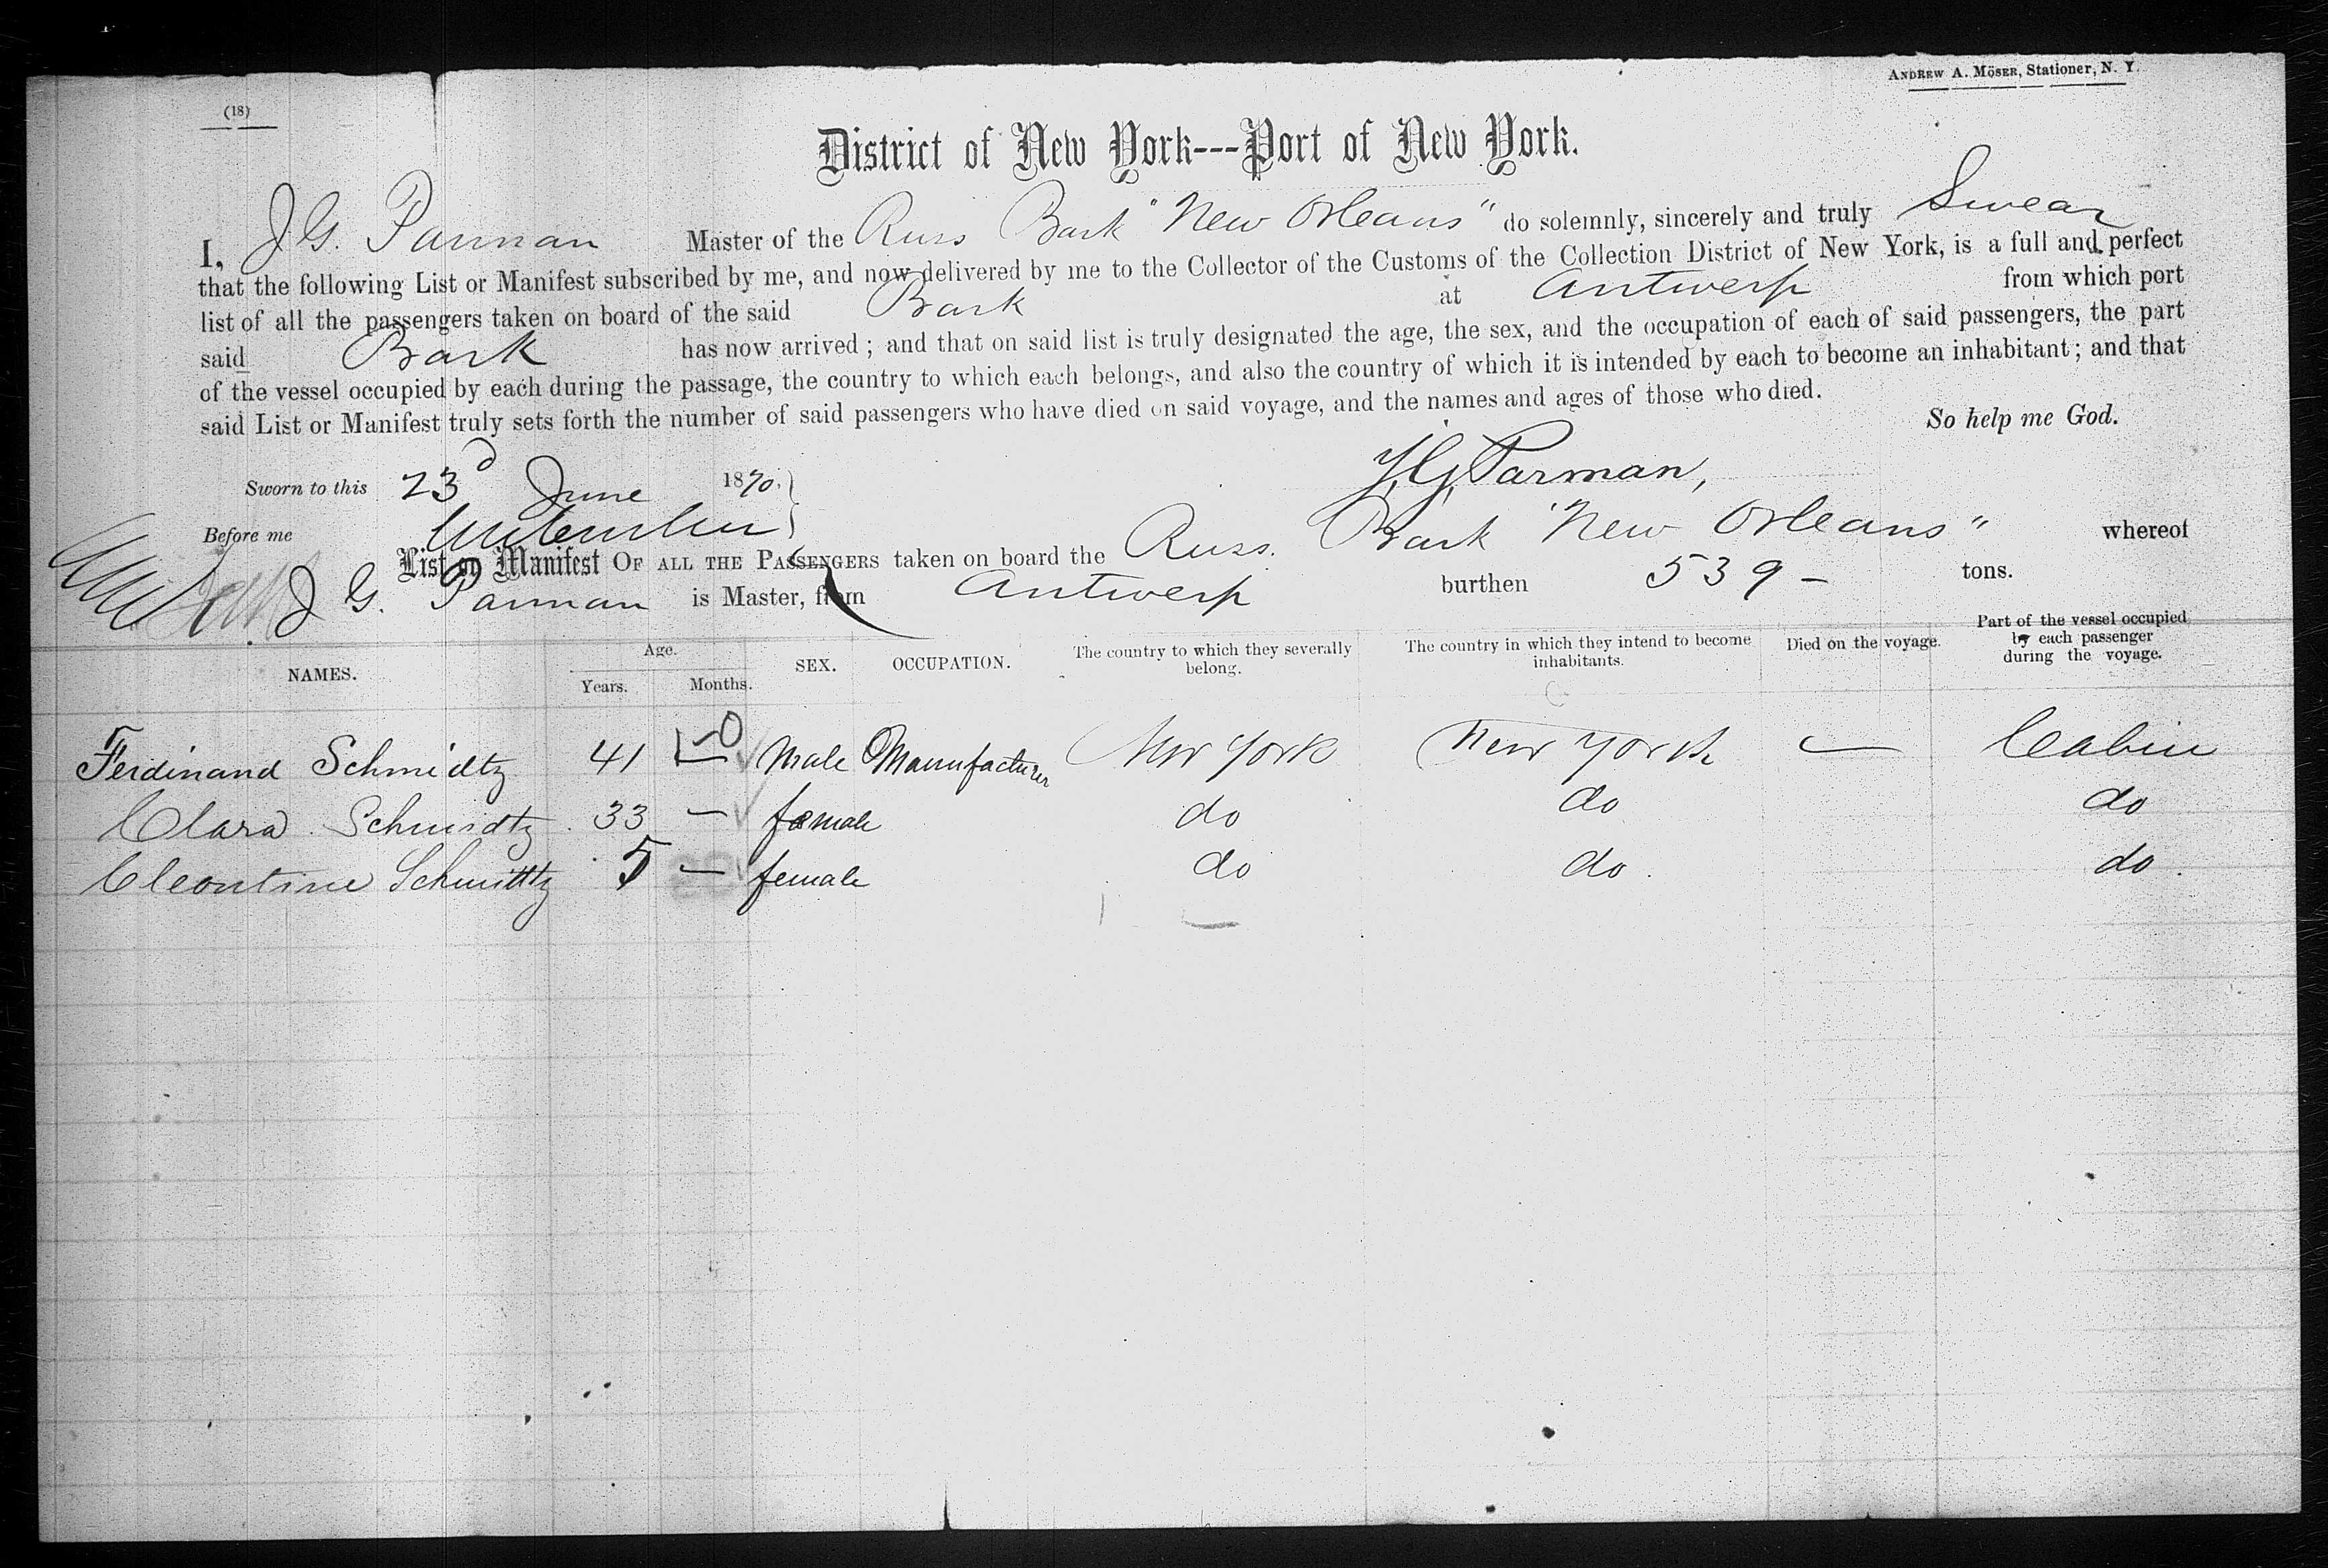 ANDREW A. MÖSER, Stationer, N. Y.
(18)
District of New York---Port of New York.
I, J G. Parman Master of the Russ Bark "New Orleans" do solemnly, sincerely and truly Swear
that the following List or Manifest subscribed by me, and now delivered by me to the Collector of the Customs of the Collection District of New York, is a full and perfect
list of all the passengers taken on board of the said Bark at Antwerp from which port
said Bark has now arrived; and that on said list is truly designated the age, the sex, and the occupation of each of said passengers, the part
of the vessel occupied by each during the passage, the country to which each belongs, and also the country of which it is intended by each to become an inhabitant; and that
said List or Manifest truly sets forth the number of said passengers who have died on said voyage, and the names and ages of those who died.
So help me God.
Sworn to this 23d June 1870.
J. G. Parman,
Before me
List or Manifest OF ALL THE PASSENGERS taken on board the Russ. Bark "New Orleans" whereof
J G. Parman is Master, from Antwerp burthen 539 - tons.
NAMES. Age. Years. Months. SEX. OCCUPATION. The country to which they severally belong. The country in which they intend to become inhabitants. Died on the voyage. Part of the vessel occupied by each passenger during the voyage.
Ferdinand Schmidtz 41 - Male Manufacturer New York New York — Cabin
Clara Schmidtz 33 - female do do do
Cleontine Schmidtz 5 - female do do. do.